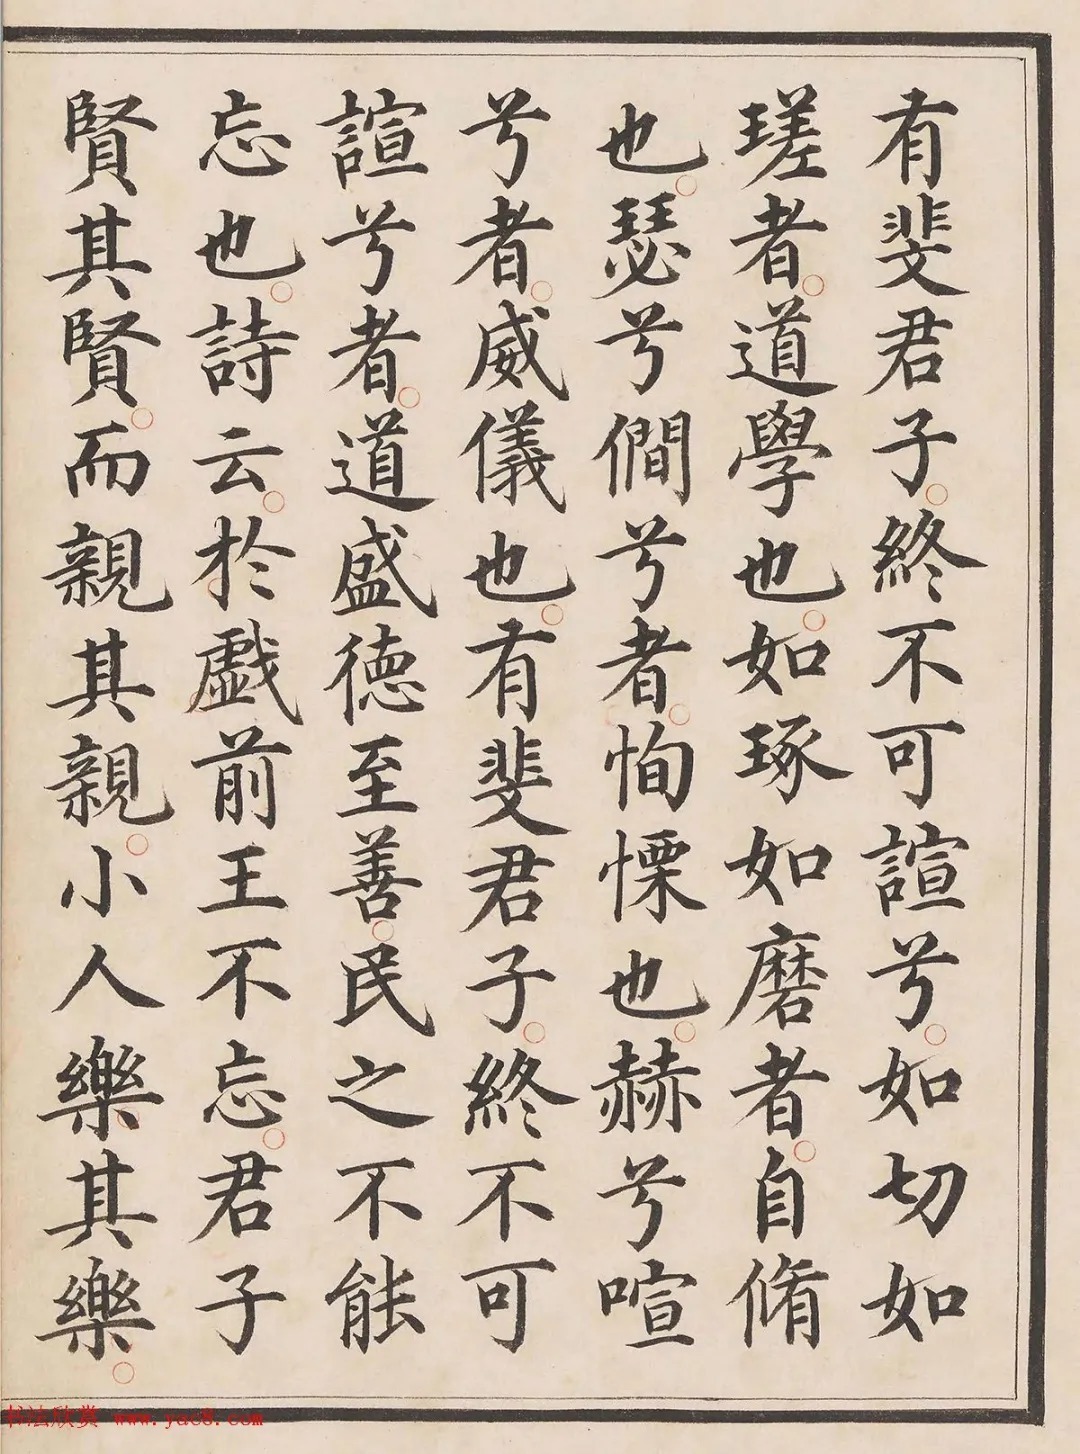 有斐君子。終不可諠兮。如切如
瑳者。道學也。如琢如磨者。自脩
也。瑟兮僩兮者。恂慄也。赫兮喧
兮者。威儀也。有斐君子。終不可
諠兮者。道盛德至善。民之不能
忘也。詩云。於戲前王不忘。君子
賢其賢。而親其親。小人樂其樂。
书法欣赏 www.yac8.com